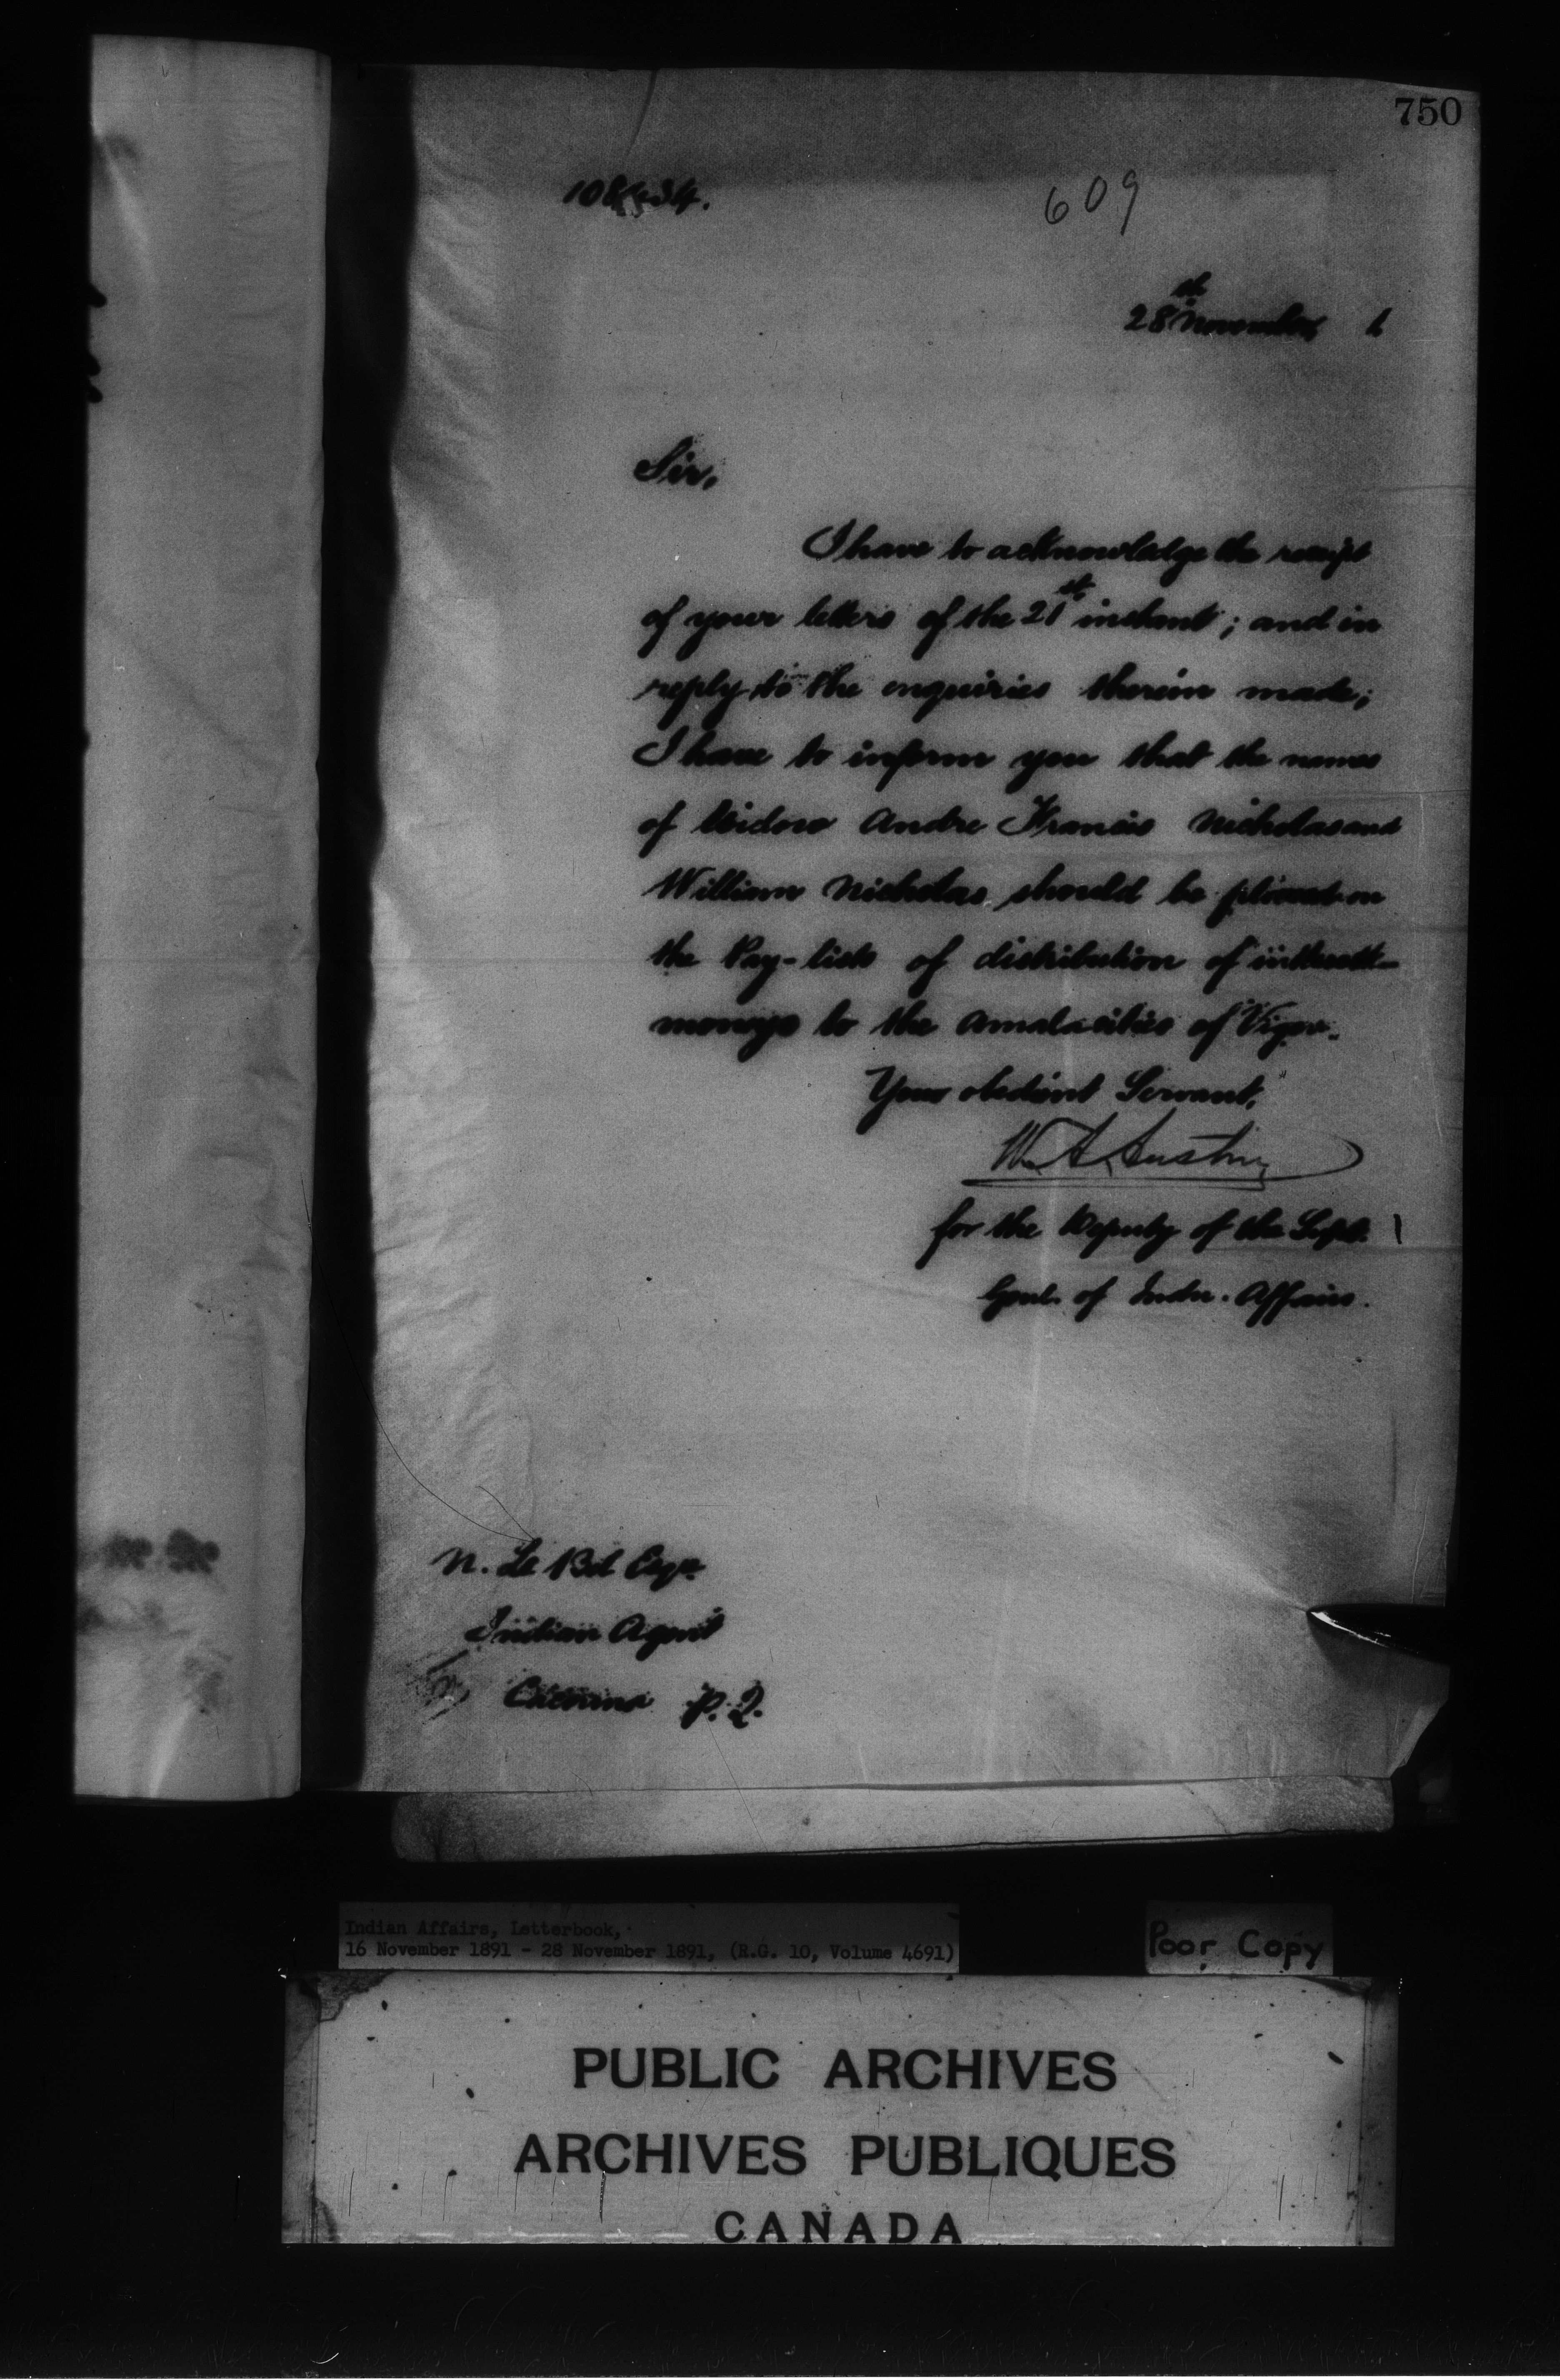 750
609
28th November 1
Sir,
I have to acknowledge the receipt
of your letters of the 21st instant; and in
reply to the enquiries therein made;
I have to inform you that the names
of Widow Andre Francis Nicholas and
William Nicholas should be placed on
the Pay-lists of distribution of interest
moneys to the Amalacites of Viger.
Your obedient Servant,
W. A. Austin
for the Deputy of the Supt.
Genl. of Indn. Affairs.
N. Le Bel Esqr.
Indian Agent
Cacouna P.Q.
Indian Affairs, Letterbook,
16 November 1891 - 28 November 1891, (R.G. 10, Volume 4691)
Poor Copy
PUBLIC ARCHIVES
ARCHIVES PUBLIQUES
CANADA